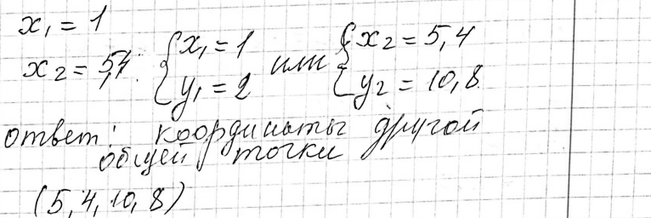 x₁ = 1
x₂ = 5,4. { x₁ = 1 y₁ = 2 или { x₂ = 5,4 y₂ = 10,8.
ответ: координаты другой
общей точки
(5,4, 10,8)